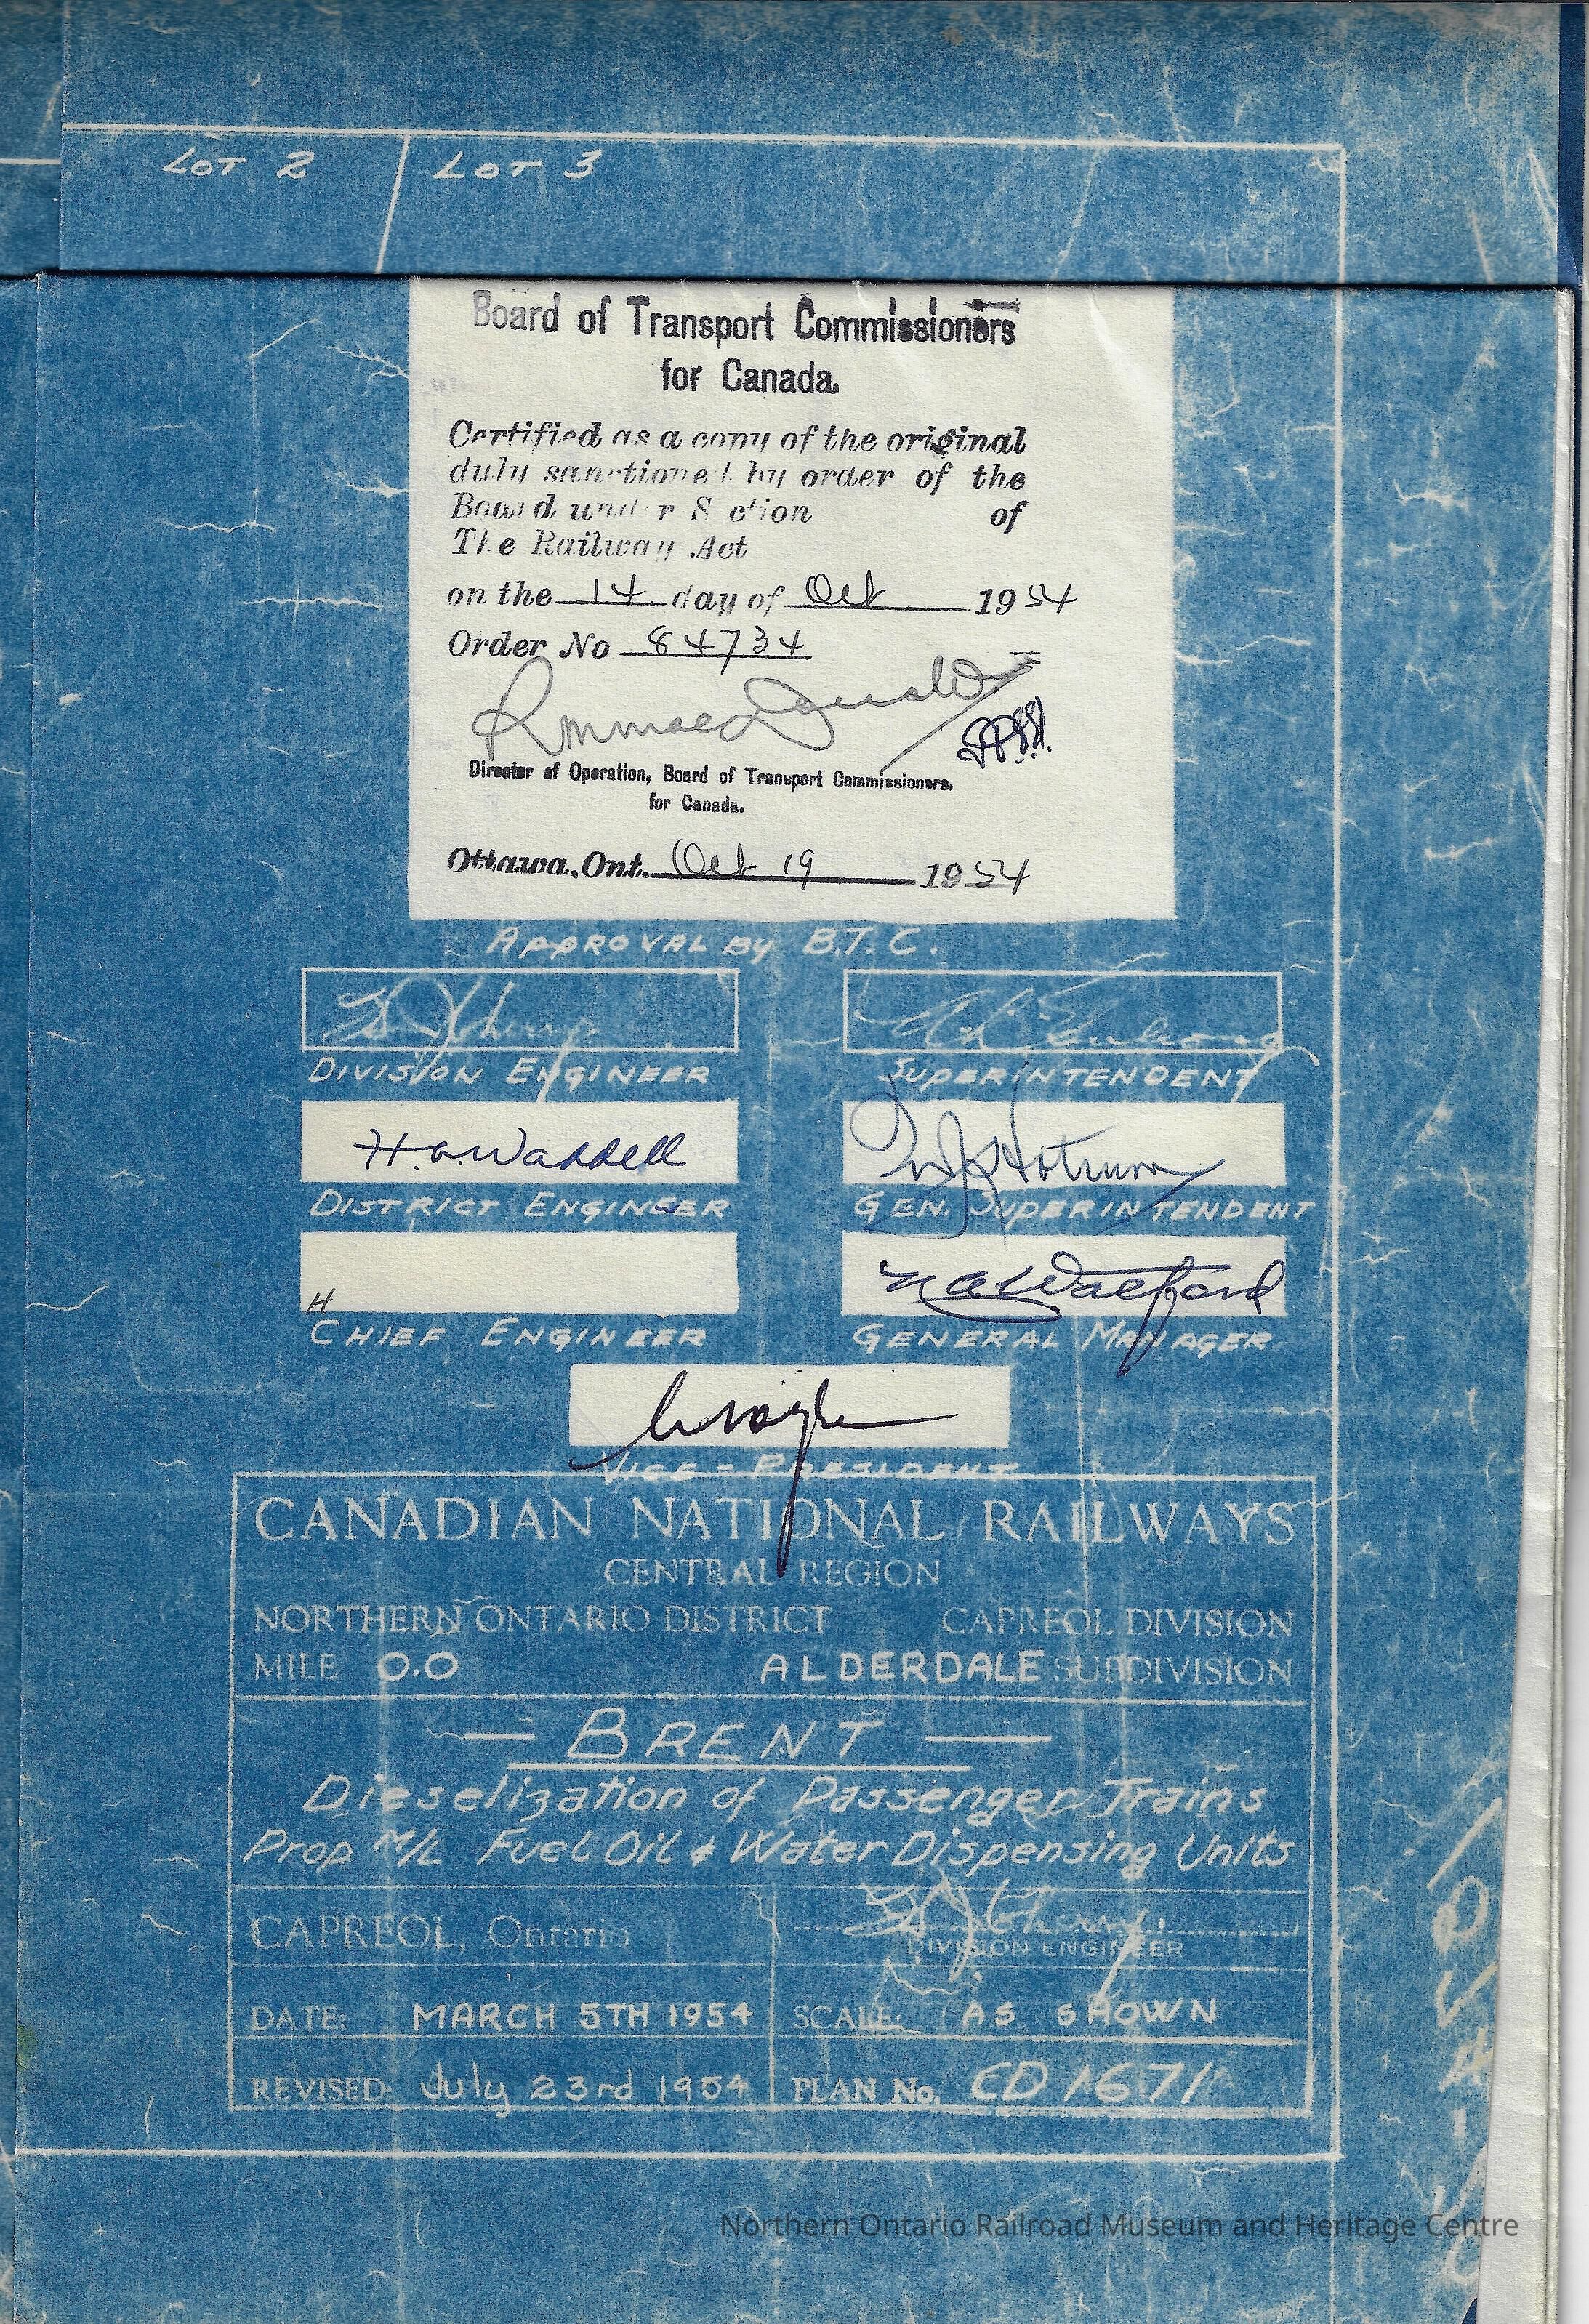 LOT 2 LOT 3
Board of Transport Commissioners
for Canada.
Certified as a copy of the original
duly sanctioned by order of the
Board under Section of
The Railway Act
on the 14 day of Oct 1954
Order No 84734
Director of Operation, Board of Transport Commissioners.
for Canada.
Ottawa, Ont. Oct 19 1954
APPROVAL by B.T.C.
DIVISION ENGINEER SUPERINTENDENT
H.A. Waddell
DISTRICT ENGINEER GEN. SUPERINTENDENT
H
CHIEF ENGINEER GENERAL MANAGER
VICE - PRESIDENT
CANADIAN NATIONAL RAILWAYS
CENTRAL REGION
NORTHERN ONTARIO DISTRICT CAPREOL DIVISION
MILE 0.0 ALDERDALE SUBDIVISION
— BRENT —
Dieselization of Passenger Trains
Prop M/L Fuel Oil & Water Dispensing Units
CAPREOL, Ontario
DIVISION ENGINEER
DATE: MARCH 5TH 1954 SCALE: AS SHOWN
REVISED: July 23rd 1954 PLAN No. CD 1671
Northern Ontario Railroad Museum and Heritage Centre